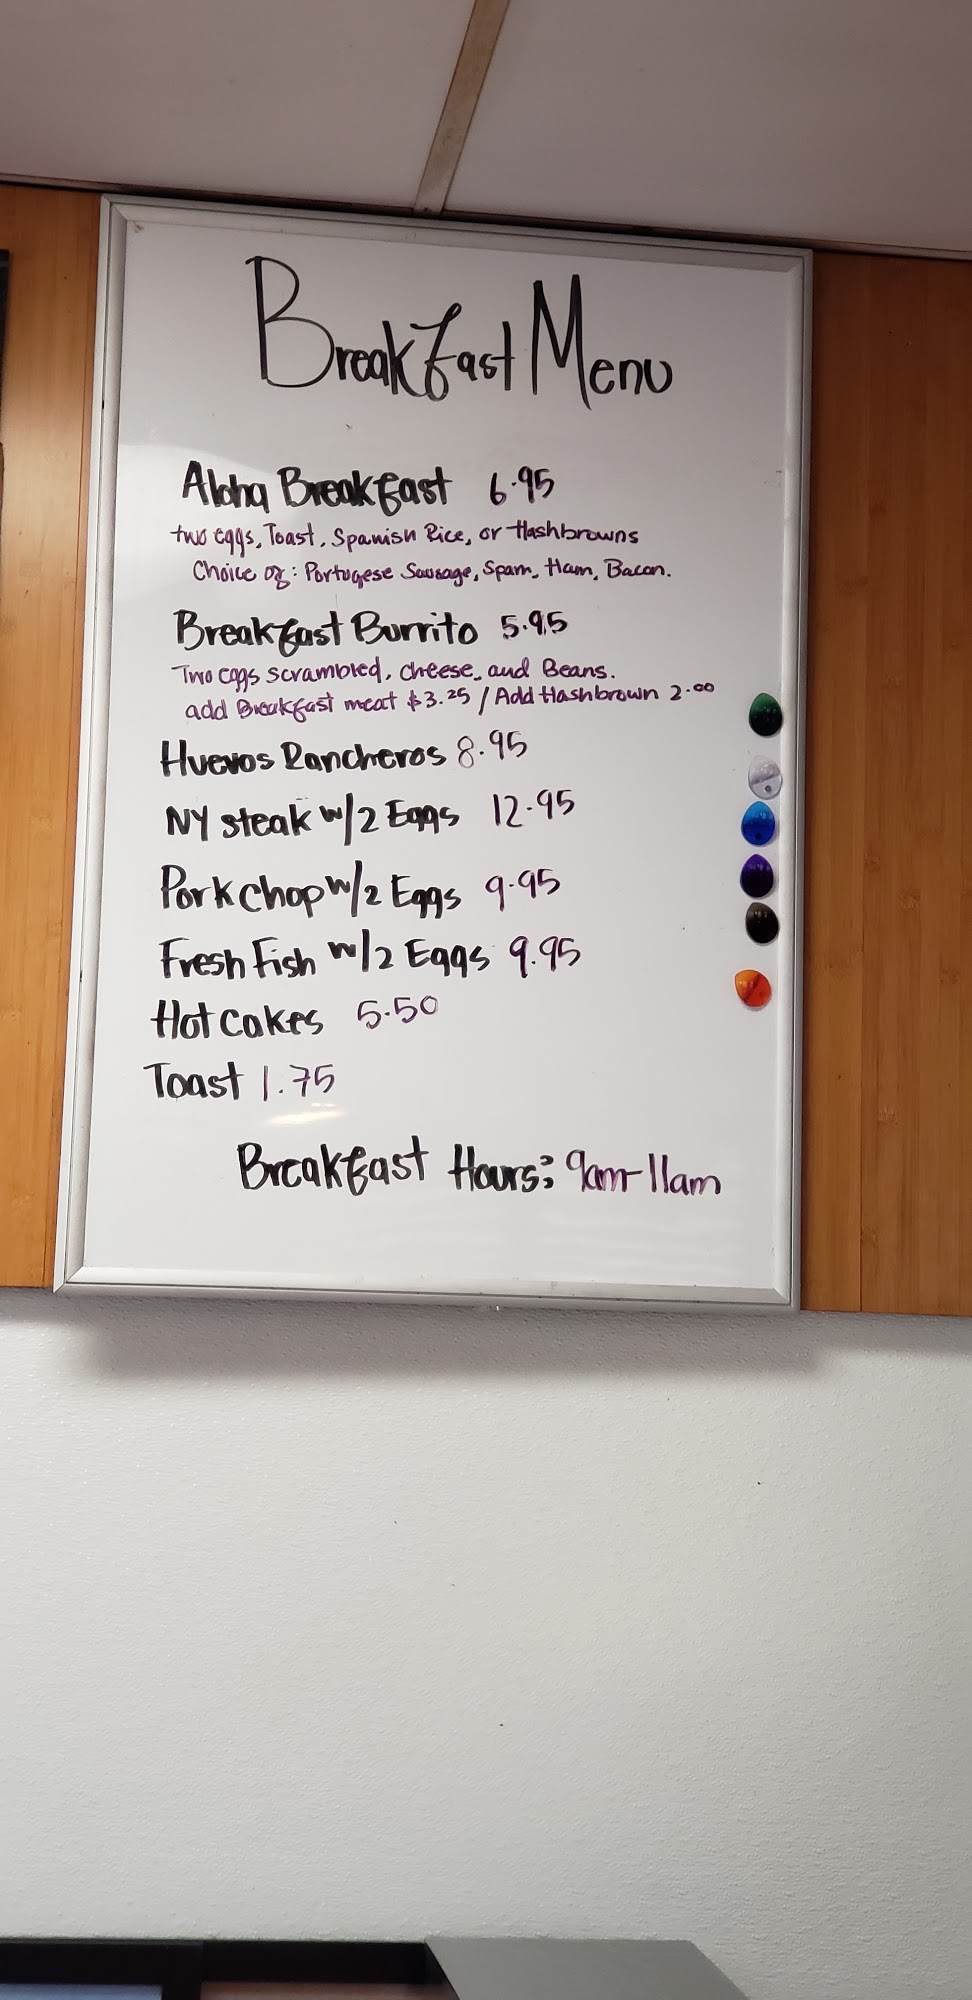 Breakfast Menu
Aloha Breakfast 6.95
two eggs, Toast, Spanish Rice, or Hashbrowns
Choice of: Portugese Sausage, Spam, Ham, Bacon.
Breakfast Burrito 5.95
Two eggs scrambled, cheese, and Beans.
add Breakfast meat $3.25 / Add Hashbrown 2.00
Huevos Rancheros 8.95
NY steak w/2 Eggs 12.95
Pork chop w/2 Eggs 9.95
Fresh Fish w/2 Eggs 9.95
Hot cakes 5.50
Toast 1.75
Breakfast Hours: 9am-11am